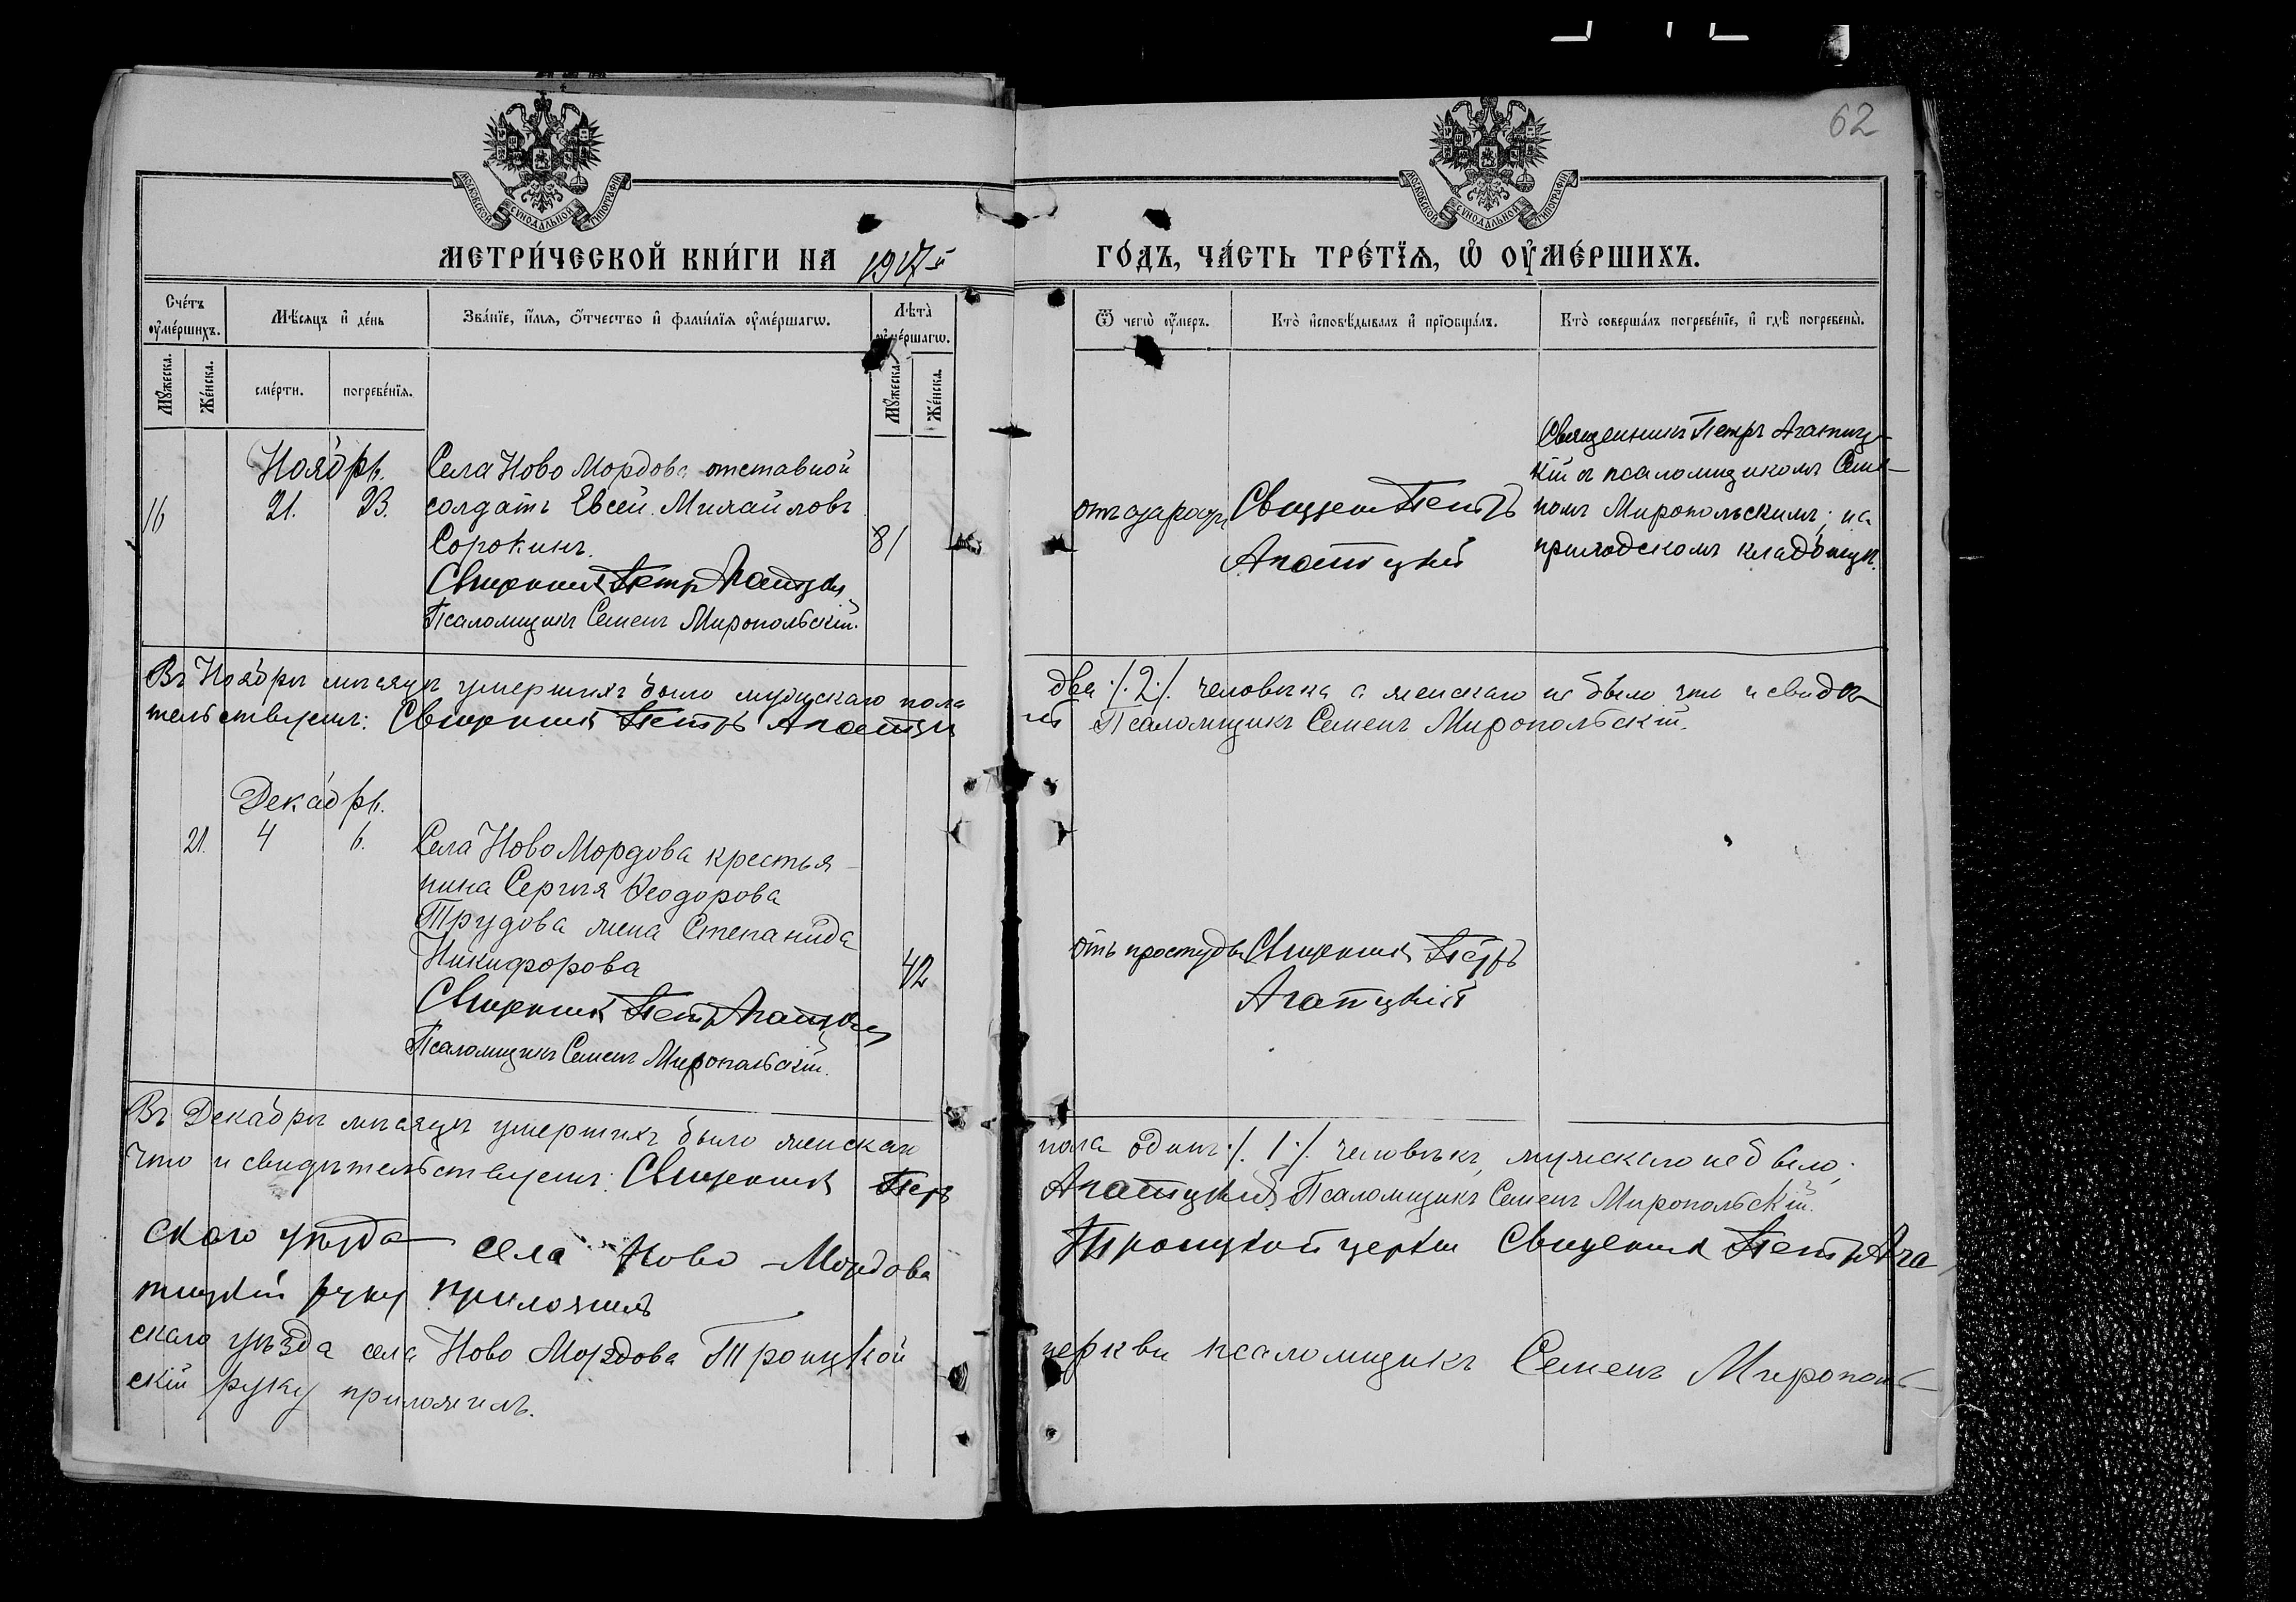 62
МОСКОВСКОЙ СѴНОДАЛЬНОЙ ТИПОГРАФІИ
МОСКОВСКОЙ СѴНОДАЛЬНОЙ ТИПОГРАФІИ
МЕТРИ́ЧЕСКОЙ КНИ́ГИ НА 1917й
ГО́ДЪ, ЧА́СТЬ ТРЕ́ТЇѦ, Ѡ҆ ОУ҆МЕ́РШИХЪ.
Сче́тъ оу҆ме́ршихъ.
Мѣ́сѧцъ и҆ де́нь
Зва́нїе, и҆́мѧ, ѻ҆́тчество и҆ фами́лїѧ оу҆ме́ршагѡ.
Лѣ́та оу҆ме́ршагѡ.
Мꙋ́жеска.
Же́нска.
сме́рти.
погребе́нїѧ.
Мꙋ́жеска.
Же́нска.
Ѿ чегѡ̀ оу҆́меръ.
Кто̀ и҆сповѣ́дывалъ и҆ прїѡбща́лъ.
Кто̀ соверша́лъ погребе́нїе, и҆ гдѣ̀ погребены̀.
Ноябрь.
16
21.
23.
Села Ново Мордова отставной
солдатъ Евсей Михайловъ
Сорокинъ.
81
Священник Петр Агатицкій
Псаломщикъ Семенъ Миропольскій.
Священ Петръ
Агатицкий
Священникъ Петръ Агатиц-
кій съ псаломщикомъ Семе-
номъ Миропольскимъ; на
приходскомъ кладбищѣ.
Въ Ноябрѣ мѣсяцѣ умершихъ было мужскаго пола
два ./. 2 ./. человѣка а женскаго не было что и свидѣ-
тельствуемъ: Священник Петръ Агатицкий
Псаломщикъ Семенъ Миропольскій.
Декабрь.
21.
4
6.
Села Ново Мордова крестья-
нина Сергѣя Ѳеодорова
Трудова жена Степанида
Никифорова
42
Священник Петр Агатицкий
Псаломщикъ Семенъ Миропольскій.
Отъ простуды
Священник Петръ
Агатицкій
Въ Декабрѣ мѣсяцѣ умершихъ было женскаго
пола одинъ ./. 1 ./. человѣкъ, мужскаго не было;
Что и свидѣтельствуемъ: Священник Петръ
Агатицкий Псаломщикъ Семенъ Миропольскій.
скаго уѣзда села Ново-Мордова
Троицкой церкви Священник Петръ Ага
тицкий руку приложилъ
скаго уѣзда села Ново Мордова Троицкой
церкви псаломщикъ Семенъ Мирополь-
скій руку приложилъ.